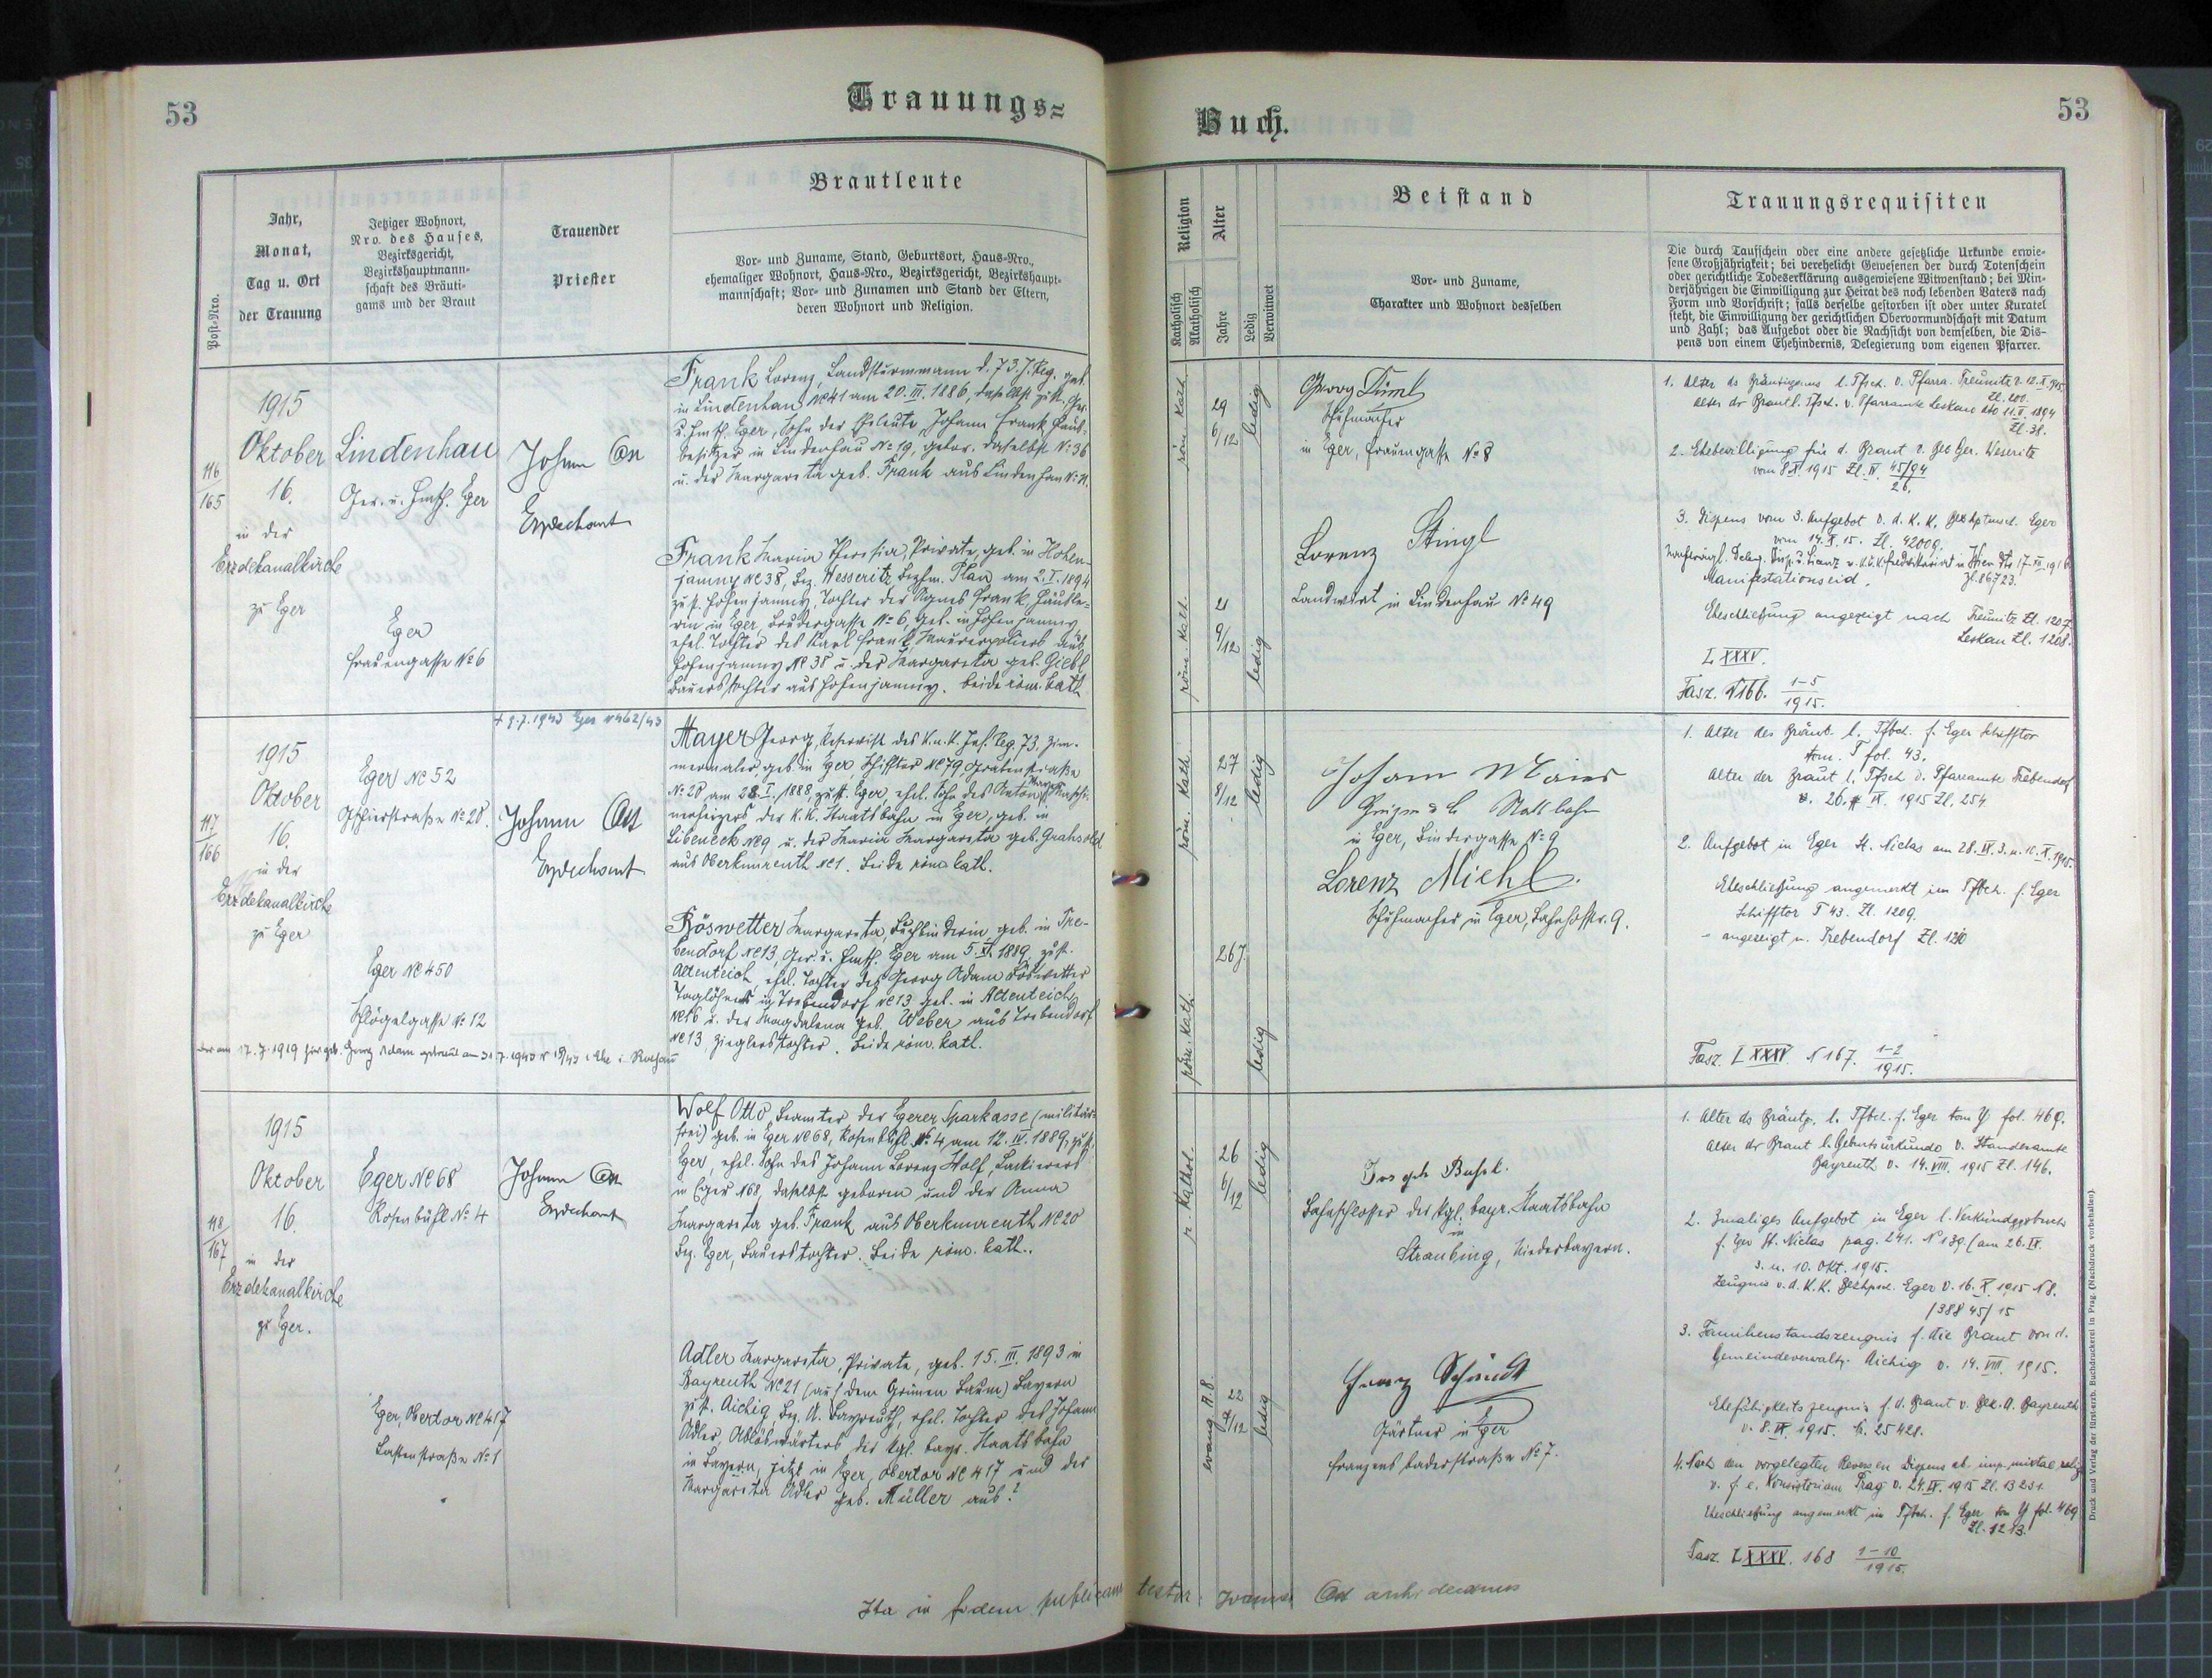 53
Trauungs=
Jahr,
Monat,
Tag u. Ort
der Trauung
Post-Nro.
Jetziger Wohnort,
Nro. des Hauses,
Bezirksgericht,
Bezirkshauptmann-
schaft des Bräuti-
gams und der Braut
Trauender
Priester
Brautleute
Vor- und Zuname, Stand, Geburtsort, Haus-Nro.,
ehemaliger Wohnort, Haus-Nro., Bezirksgericht, Bezirkshaupt-
mannschaft; Vor- und Zunamen und Stand der Eltern,
deren Wohnort und Religion.
116
165
1915
Oktober
16.
in der
Erzdekanalkirche
zu Eger
Lindenhau
Ger. u. Hmsch. Eger
Eger
Frauengasse No 6
Johann
Erzdechant
Frank Lorenz, Landsturmmann d. 73. J. Reg. geb.
in Lindenhau No 41 am 20. III. 1886, daselbst zust. Ger.
u. Hmsch. Eger, Sohn der Eheleute Johann Frank Haus-
besitzer in Lindenhau No 19, gebor. daselbst No 36
u. der Margareta geb. Frank aus Lindenhau
Frank Maria Theresia, Private, geb. in Hohen-
jamny No 38, Bez. Wesseritz Bezhm. Plan am 2. I. 1894
zust. Hohenjamny, Tochter der Agnes Frank Häusle-
rin in Eger, No 6, geb. in Hohenjamny
ehel. Tochter des Karl Frank, Maurerpoliers aus
Hohenjamny No 38 u. der Margareta geb. Giebl
Bauerstochter aus Hohenjamny. beide röm. kath.
117
166
1915
Oktober
16.
in der
Erzdekanalkirche
zu Eger
Eger No 52
No 28.
Eger No 450
Schlögelgasse No 12
Johann
Erzdechant
+ 9.7.1943 Eger No 462/43
Mayer Georg, Reservist des K.u.K. Inf. Reg. 73, Zim-
mermaler geb. in Eger, Schiffter No 79, Grabenstraße
No 20 am 28. I. 1888, zust. Eger, ehel. Sohn des Anton Mayer Maschi-
nenheizers der K.K. Staatsbahn in Eger, geb. in
Libeneck No 9 u. der Maria Margareta geb. Grahsold
aus Oberkunreuth No 1. Beide röm. kath.
Röswetter Margareta, Buchbinderin, geb. in Tre-
bendorf No 13, Ger. u. Hmsch. Eger am 5. VI. 1889 zust.
Altenteich, ehel. Tochter des Georg Adam Röswetter
Taglöhners in Trebendorf No 13 geb. in Altenteich
No 16 u. der Magdalena geb. Weber aus Trebendorf
No 13 Zieglerstochter. Beide röm. kath.
am 17.7.1919 geb. Georg Adam getraut am 31.7.1943
118
167
1915
Oktober
16.
in der
Erzdekanalkirche
zu Eger.
Eger No 68
Rosenbühl No 4
Eger, Obertor No 417
No 1
Johann
Erzdechant
Wolf Otto, Beamter der Egerer Sparkasse (militär-
frei) geb. in Eger No 68, Rosenbühl No 4, am 12. IV. 1889, zust.
Eger, ehel. Sohn des Johann Lorenz Wolf, Lackierers
in Eger No 68, daselbst geboren und der Anna
Margareta geb. Frank aus Oberkunreuth No 20
Bez. Eger, Bauerstochter. Beide röm. kath.
Adler Margareta, Private, geb. 15. III. 1893 in
Bayreuth No 21 (auf dem Grünen Baum) Bayern
zust. Aichig, Bez. A. Bayreuth, ehel. Tochter des Johann
Adler, Ablöswärters der kgl. bayr. Staatsbahn
in Bayern, jetzt in Eger, Obertor No 417 und der
Margareta Adler geb. Müller aus?
Ita in fidem publicam testor
Buch.
53
Religion
Katholisch
Akatholisch
Alter
Jahre
Ledig
Verwitwet
Beistand
Vor- und Zuname,
Charakter und Wohnort desselben
Trauungsrequisiten
Die durch Taufschein oder eine andere gesetzliche Urkunde erwie-
sene Großjährigkeit; bei verehelicht Gewesenen der durch Totenschein
oder gerichtliche Todeserklärung ausgewiesene Witwenstand; bei Min-
derjährigen die Einwilligung zur Heirat des noch lebenden Vaters nach
Form und Vorschrift; falls derselbe gestorben ist oder unter Kuratel
steht, die Einwilligung der gerichtlichen Obervormundschaft mit Datum
und Zahl; das Aufgebot oder die Nachsicht von demselben, die Dis-
pens von einem Ehehindernis, Delegierung vom eigenen Pfarrer.
röm. kath.
29
6/12
ledig
röm. kath.
21
9/12
ledig
Georg
Schuhmacher
in Eger, Frauengasse No 8
Lorenz Stingl
Landwirt in Lindenhau No 49
1. Alter des Bräutigams l. Tfsch. v. Pfarra. Treunitz v. 12. X. 1915
Zl. 200.
Alter der Braut l. Tfsch. v. Pfarramte Leskau dto 11. V. 1894
Zl. 38.
2. Ehebewilligung für d. Braut v. Bez. Ger. Weseritz
vom 8. X. 1915 Zl. IV. 45/94
26.
3. Dispens vom 3. Aufgebot v. d. K.K. Bezhptmsch. Eger
vom 14. X. 15. Zl. 42009
Zl. 86723.
Manifestationseid.
Eheschließung angezeigt nach Treunitz Zl. 1207.
Leskau Zl. 1208.
LXXXV.
Fasz. N 166. 1-5
1915.
röm. kath.
27
8/12
ledig
röm. kath.
26 J.
ledig
Johann
Staatsbahn
in Eger, No 9
Lorenz Michl
Schuhmacher in Eger, Bahnhofstr. 9.
1. Alter des Bräut. l. Tfbch. f. Eger Schifftor
tom. T fol. 43.
Alter der Braut l. Tfsch. d. Pfarramte Trebendorf
v. 26. IX. 1915 Zl. 254
2. Aufgebot in Eger St. Niclas am 28. IX. 3. u. 10. X. 1915.
Eheschließung angemerkt im Tfbch. f. Eger
Schifftor T 43. Zl. 1209.
" angezeigt n. Trebendorf Zl. 1210
Fasz. LXXXV. N 167. 1-2
1915.
r. kathol.
26
6/12
ledig
evang. A. B.
22
7/12
ledig
Bahnschlosser der kgl. bayr. Staatsbahn
in
Straubing, Niederbayern.
Schmidt
Gärtner in Eger
Franzensbaderstraße No 7.
1. Alter des Bräutg. l. Tfbch. f. Eger tom Y fol. 469.
Alter der Braut l. Geburtsurkunde v. Standesamte
Bayreuth v. 14. VIII. 1915 Zl. 146.
2. 3maliges Aufgebot in Eger l. Verkündgsbuch
f. Eger St. Niclas pag. 241. N 139. (am 26. IX.
3. u. 10. Okt. 1915.
Zeugnis v. d. K.K. Bezhpsch. Eger v. 16. X. 1915 N 8.
/38845/15
3. Familienstandszeugnis f. die Braut von d.
Gemeindeverwaltg. Aichig v. 14. VIII. 1915.
Ehefähigkeitszeugnis f. d. Braut v. Bez. A. Bayreuth
v. 8. IX. 1915. N. 25428.
4. Nach den vorgelegten Reversen Dispens ab imp. mixtae relig.
v. f. e. Konsistorium Prag v. 24. IX. 1915 Zl. 13231.
Eheschließung angemerkt in Tfbch. f. Eger tom Y fol. 469
Zl. 1213.
Fasz. LXXXV. 168 1-10
1915.
archidecanus
Druck und Verlag der fürst-erzb. Buchdruckerei in Prag. (Nachdruck vorbehalten).